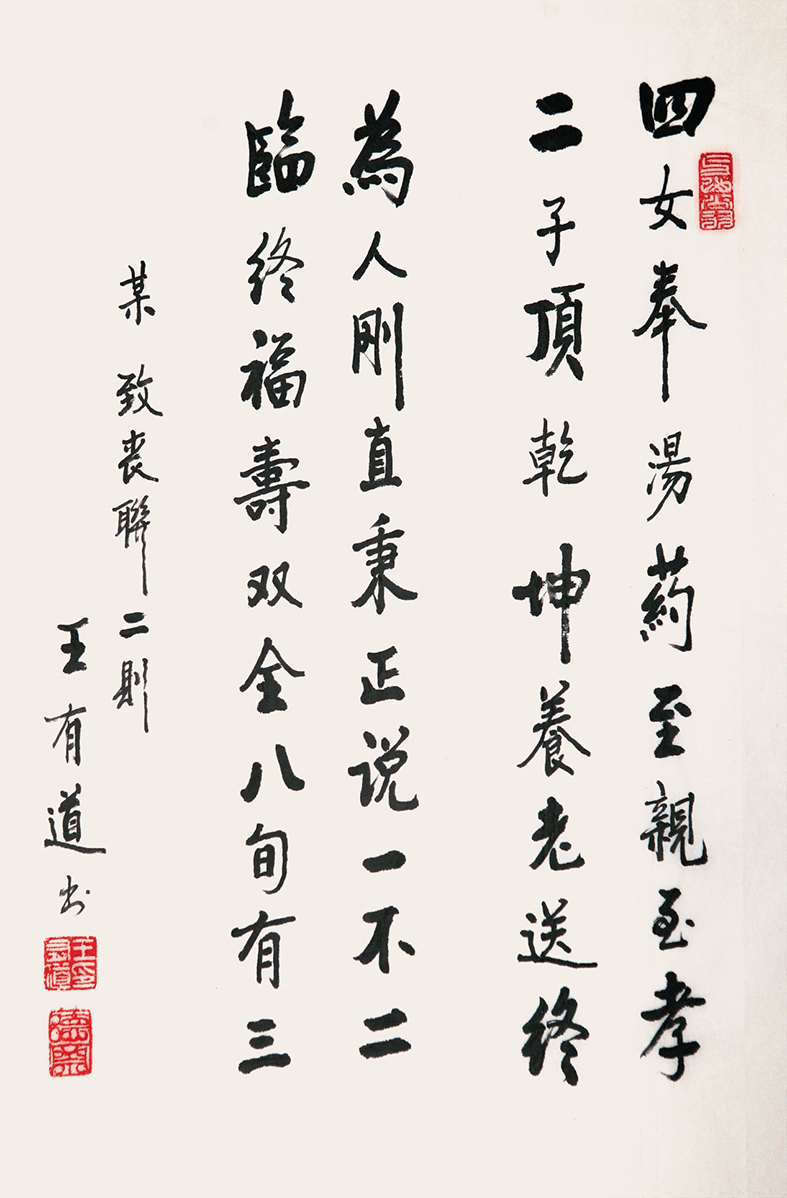 四女奉湯药至親至孝
二子頂乾坤養老送終
為人刚直秉正说一不二
臨终福壽双全八旬有三
某致丧聯二則
王有道书